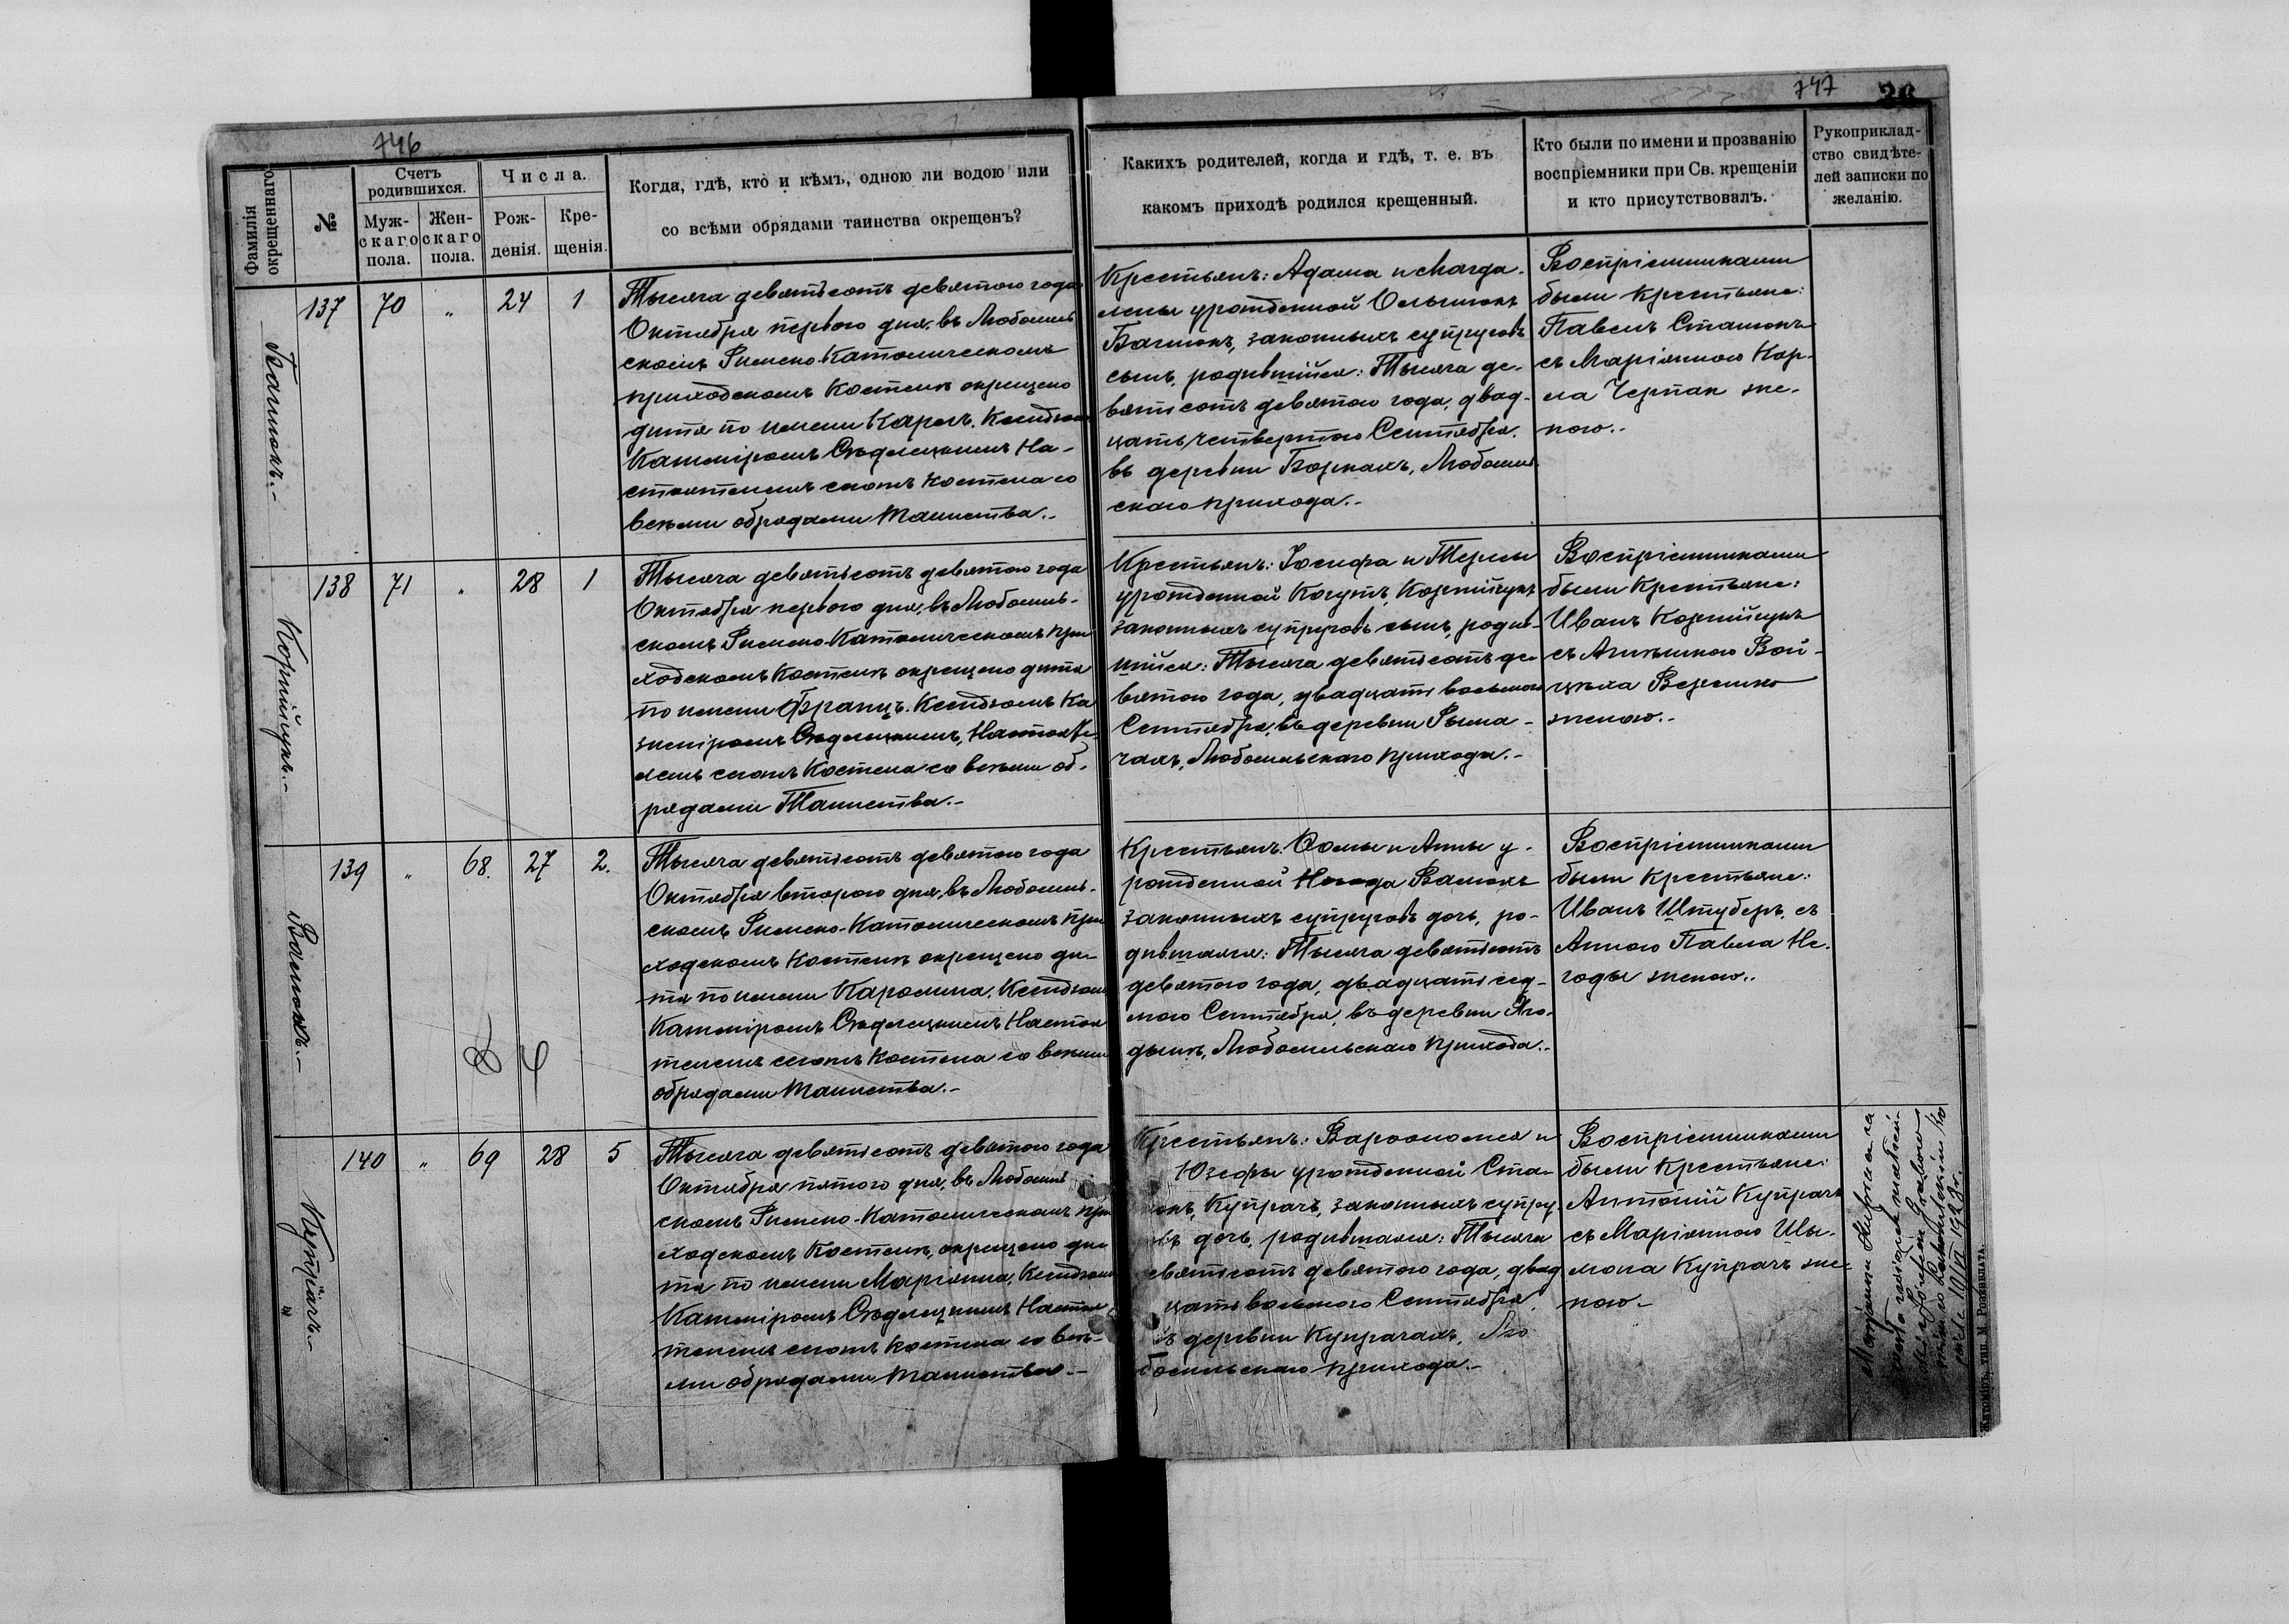 746
747
Фамилія окрещеннаго.
№
Счетъ родившихся.
Муж-
скаго
пола.
Жен-
скаго
пола.
Числа.
Рож-
денія.
Кре-
щенія.
Когда, гдѣ, кто и кѣмъ, одною ли водою или
со всѣми обрядами таинства окрещенъ?
Какихъ родителей, когда и гдѣ, т. е. въ
какомъ приходѣ родился крещенный.
Кто были по имени и прозванію
воспріемники при Св. крещеніи
и кто присутствовалъ.
Рукоприклад-
ство свидѣте-
лей записки по
желанію.
137 70 " 24 1
Тысяча девятьсотъ девятого года
Октября первого дня, въ Любомль
скомъ Римско-Католическомъ
приходскомъ Костелѣ окрещено
дитя по имени Кароль, Ксендзомъ
Казиміромъ Сѣдлецкимъ На-
стоятелемъ сногъ Костела со
всѣми обрядами таинства.-
Крестьянъ: Адама и Магда-
лены урожденной
законныхъ супруговъ
сынъ, родившійся: Тысяча де-
вятьсотъ девятого года, двад-
цать четвертого Сентября,
въ деревни Боркахъ, Любомль
скаго прихода.-
Воспріемниками
были крестьяне:
Павелъ Сташокъ
съ Маріянною Кар-
ла Черпак же-
ною.-
138 71 " 28 1
Корнійчукъ.-
Тысяча девятьсотъ девятого года
Октября первого дня, въ Любомль-
скомъ Римско-Католическомъ при
ходскомъ Костелѣ окрещено дитя
по имени Францъ, Ксендзомъ Ка
зиміромъ Сѣдлецкимъ, Настояте-
лемъ сногъ Костела со всѣми об-
рядами Таинства.-
Крестьянъ: Іосифа и
урожденной Когутъ, Корнійчукъ
законныхъ супруговъ сынъ, родив-
шійся: Тысяча девятьсотъ де-
вятого года, двадцать восьмого
Сентября, въ деревни Рыма-
чахъ, Любомльскаго прихода.-
Воспріемниками
были Крестьяне:
Иванъ Корнійчукъ
съ Вой-
цѣха
женою.-
139 " 68. 27 2.
Тысяча девятьсотъ девятого года
Октября второго дня, въ Любомль-
скомъ Римско-Католическомъ при
ходскомъ Костелѣ окрещено ди-
тя по имени Каролина, Ксендзомъ
Казиміромъ Сѣдлецкимъ Настоя
телемъ сногъ Костела со всѣми
обрядами таинства.-
Крестьянъ: Ѳомы и Анны у-
рожденной Негода
законныхъ супруговъ дочь, ро-
дившаяся: Тысяча девятьсотъ
девятого года, двадцать сед-
мого Сентября, въ деревни Яго-
дынѣ, Любомльскаго прихода.-
Воспріемниками
были крестьяне:
Иванъ Штуберъ, съ
Анною Павла Не-
годы женою..
140 " 69 28 5
Купрачъ.-
Тысяча девятьсотъ девятого года
Октября пятого дня, въ Любомль
скомъ Римско-Католическомъ при
ходскомъ Костелѣ, окрещено ди
тя по имени Маріянна, Ксендзомъ
Казиміромъ Сѣдлецкимъ Настоя
телемъ сногъ Костела со всѣ-
ми обрядами таинства.-
Крестьянъ: Варѳоломея и
Юзефы урожденной Ста-
Купрачъ, законныхъ супру
дочь, родившаяся: Тысяча
девятьсотъ девятого года, двад
цать восьмого Сентября,
въ деревни Купрачахъ, Лю
бомльскаго прихода.-
Воспріемниками
были Крестьяне:
Антоній Купрачъ
съ Маріянною Шы-
мона Купрачъ же-
ною-
Marjanna
10/VI 1928 r.
Житоміръ, тип. М. Розенблата.